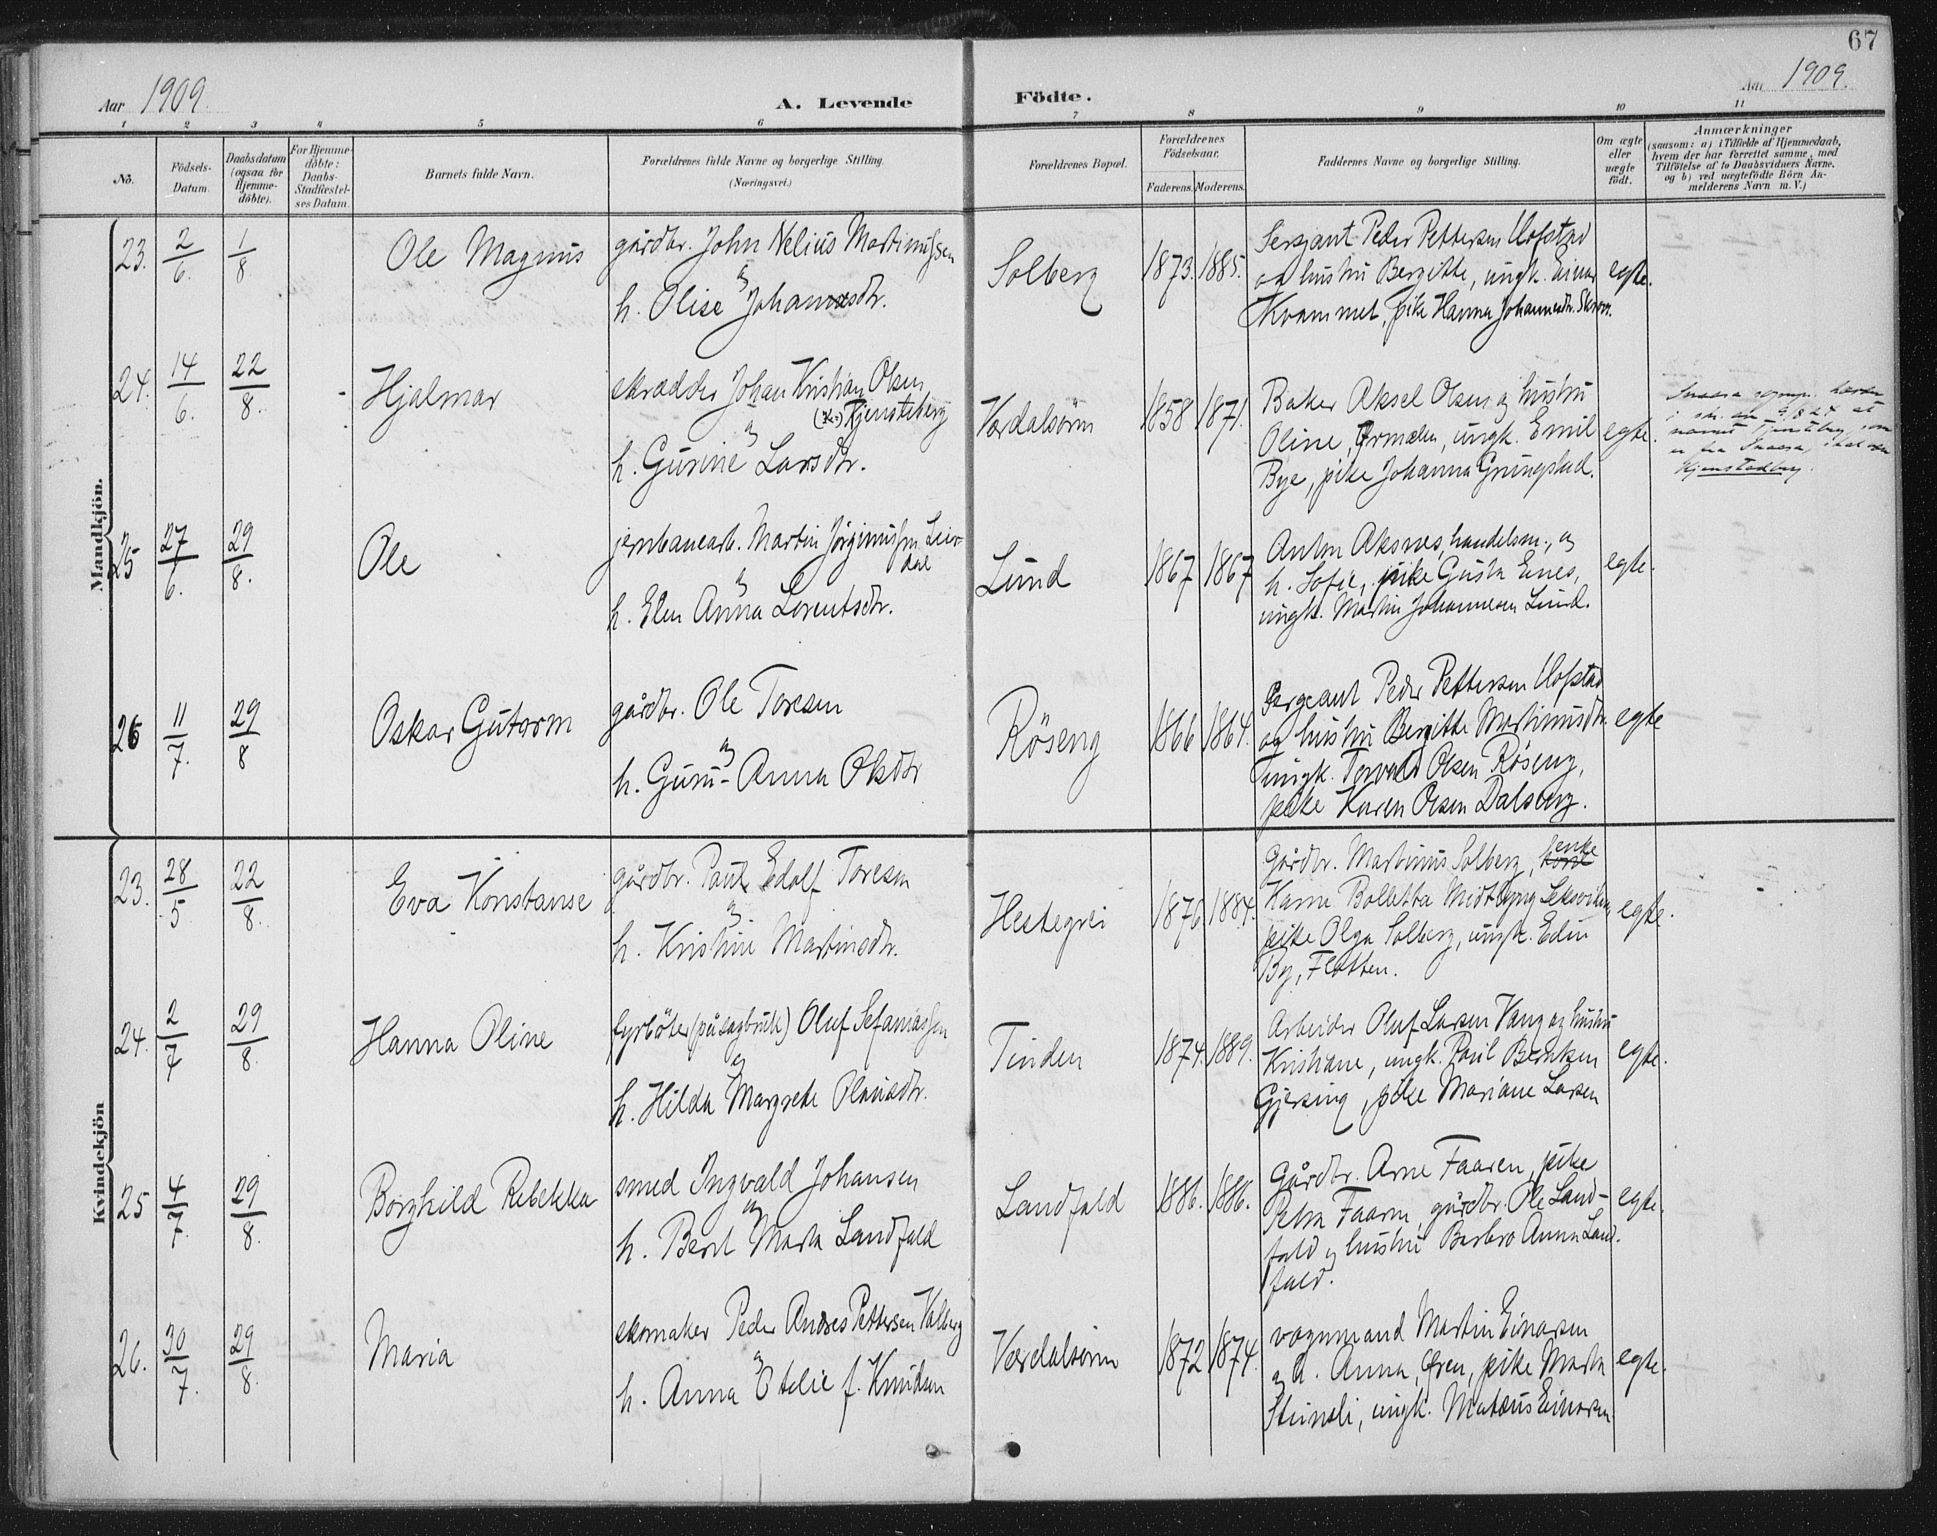 67
Aar 1909. A. Levende Födte. Aar 1909.
1 2 3 4 5 6 7 8 9 10 11
No. Födsels-Datum. Daabsdatum (ogsaa for Hjemmedöbte). For Hjemmedöbte: Daabs-Stadfæstelses Datum. Barnets fulde Navn. Forældrenes fulde Navne og borgerlige Stilling. (Næringsvei.) Forældrenes Bopæl. Forældrenes Födselsaar. Faderens. Moderens. Faddernes Navne og borgerlige Stilling. Om ægte eller uægte födt. Anmærkninger (saasom: a) i Tilfælde af Hjemmedaab, hvem der har forrettet samme, med Tilföielse af to Daabsvidners Navne, og b) ved uægtefödte Börn Anmelderens Navn m. V.)
Mandkjön.
23. 2/6. 1/8 Ole Magnus gårdbr. John Nelius Martinussen
og
h. Olise Johannesdr.
Solberg 1873. 1885.
Sersjant Peder Pettersen Hofstad
og hustru Bergitte, ungk. Einar
Kvammet, pike Hanna Johannesdr.
egte.
24. 14/6. 22/8. Hjalmar skrædder Johan Kristian Olsen
Kjenstaberg
og
h. Gurine Larsdr.
Værdalsøren 1858 1871.
Baker Aksel Olsen og hustru
Oline, Ørmælen, ungk. Emil
Bye, pike Johanna Grungstad.
egte.
Snaasa
i
er fra Snaasa, skal være
Kjenstadberg.
25 27/6. 29/8. Ole jernbanearb. Martin Jørginussen Leirdal
og
h. Elen Anna Lorentsdr.
Lund 1867 1867
Anton Aksnes, handelsm., og
h. Sofie, pike Gusta Eines,
ungk. Martin Johannesen Lund.
egte.
26 11/7. 29/8 Oskar Gutorm gårdbr. Ole Toresen
og
h. Guru-Anna Olsdtr
Röseng 1866 1864.
Sergeant Peder Pettersen Hofstad
og hustru Bergitte Martinusdtr.
ungk. Torvald Olsen Röseng,
pike Karen Olsen Dalseng.
egte
Kvindekjön
23. 28/5 22/8. Eva Konstanse gårdbr. Paul Edolf Toresen
og
h. Kristine Martinsdr.
Hestegrei 1876 1884.
Gårdbr. Martinus Solberg, enke
Karne Bolletta Midtbyng Leksviken
pike Olga Solberg, ungk. Edin
By, Flotten.
egte.
24. 2/7 29/8. Hanna Oline fyrbøter (på sagbruk) Oluf Sefaniassen
og
h. Hilda Margrete Olausdr.
Tinden 1874. 1889.
Arbeider Oluf Larsen Vang og hustru
Kristiane, ungk. Paul Berntsen
Gjersing, pike Mariane Larsen
egte.
25 4/7. 29/8. Borghild Rebekka smed Ingvald Johansen
og
h. Beret Marta Landfald
Landfald 1886. 1886.
Gårdbr. Arne Faaren, pike
Petra Faaren, gårdbr. Ole Land-
fald og hustru Barbro Anna Land-
fald.
egte.
26. 30/7. 29/8. Maria skomaker Peder Andres Pettersen Valberg
og
h. Anna Otelie f. Knudsen
Værdalsøren 1872 1874.
vognmand Martin Einarsen
og h. Anna, Øren, pike Marta
Stensli, ungk. Matæus Einarsen
egte.